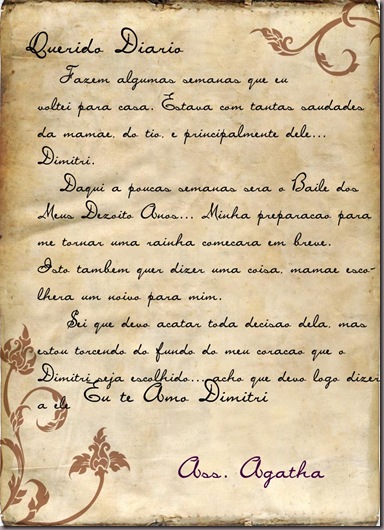 Querido Diario
Fazem algumas semanas que eu
voltei para casa. Estava com tantas saudades
da mamae, do tio, e principalmente dele...
Dimitri.
Daqui a poucas semanas sera o Baile dos
Meus Dezoito Anos... Minha preparacao para
me tornar uma rainha comecara em breve.
Isto tambem quer dizer uma coisa, mamae esco-
lhera um noivo para mim.
Sei que devo acatar toda decisao dela, mas
estou torcendo do fundo do meu coracao que o
Dimitri seja escolhido... acho que devo logo dizer
a ele Eu te Amo Dimitri
Ass. Agatha